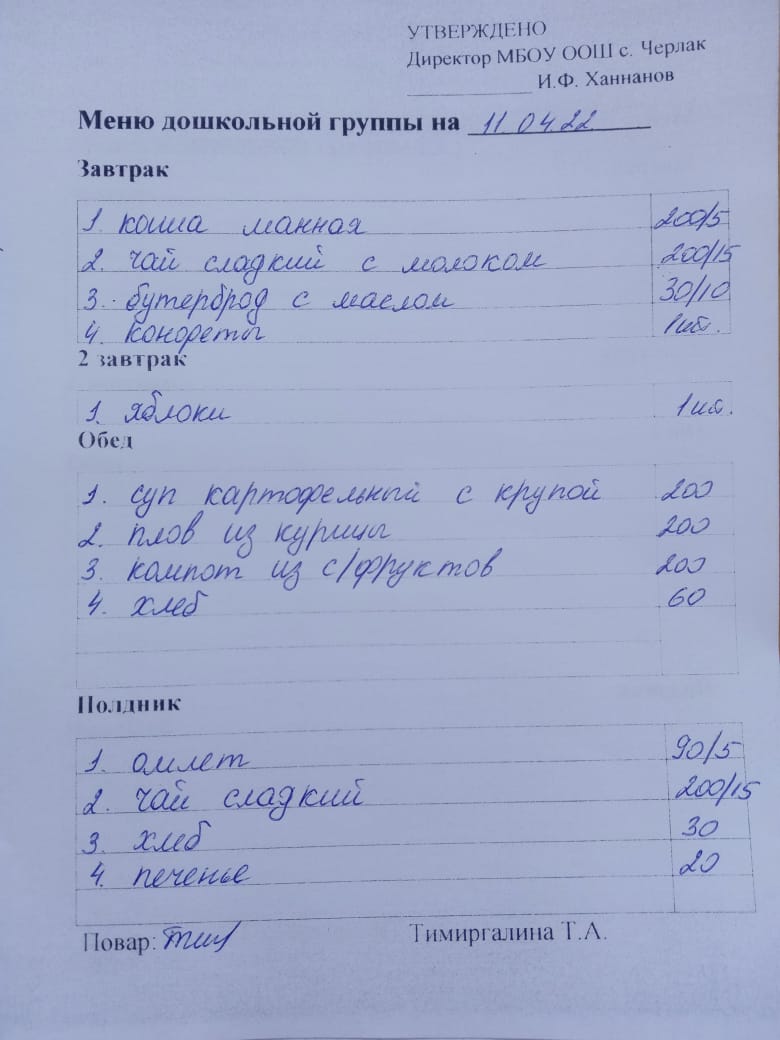 УТВЕРЖДЕНО
Директор МБОУ ООШ с. Черлак
__________ И.Ф. Ханнанов
Меню дошкольной группы на 11.04.22
Завтрак
1. каша манная 200/5
2. чай сладкий с молоком 200/15
3. бутерброд с маслом 30/10
4. конфеты 1шт.
2 завтрак
1. яблоки 1шт.
Обед
1. суп картофельный с крупой 200
2. плов из курицы 200
3. компот из с/фруктов 200
4. хлеб 60
Полдник
1. омлет 90/5
2. чай сладкий 200/15
3. хлеб 30
4. печенье 20
Повар: Тимиргалина Т.А.